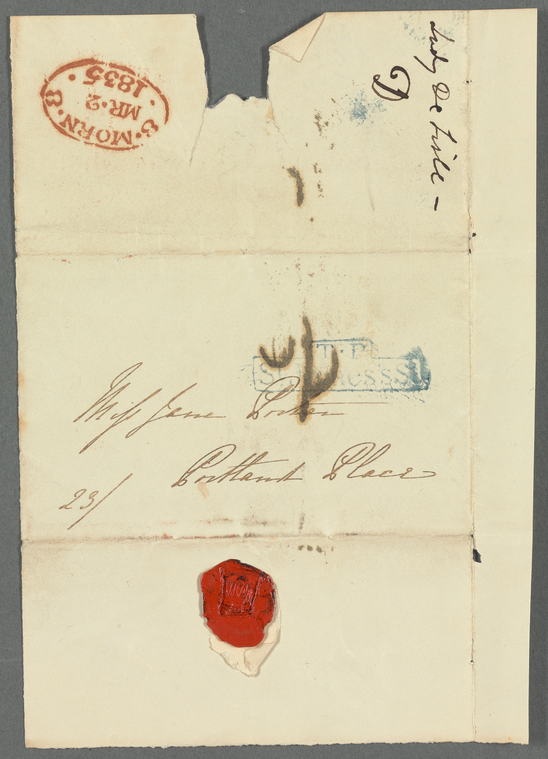 8 · MORN · 8
MR · 2
1835
Lady De Lisle –
D
T.P
Miss Jane Porter
23/ Portland Place